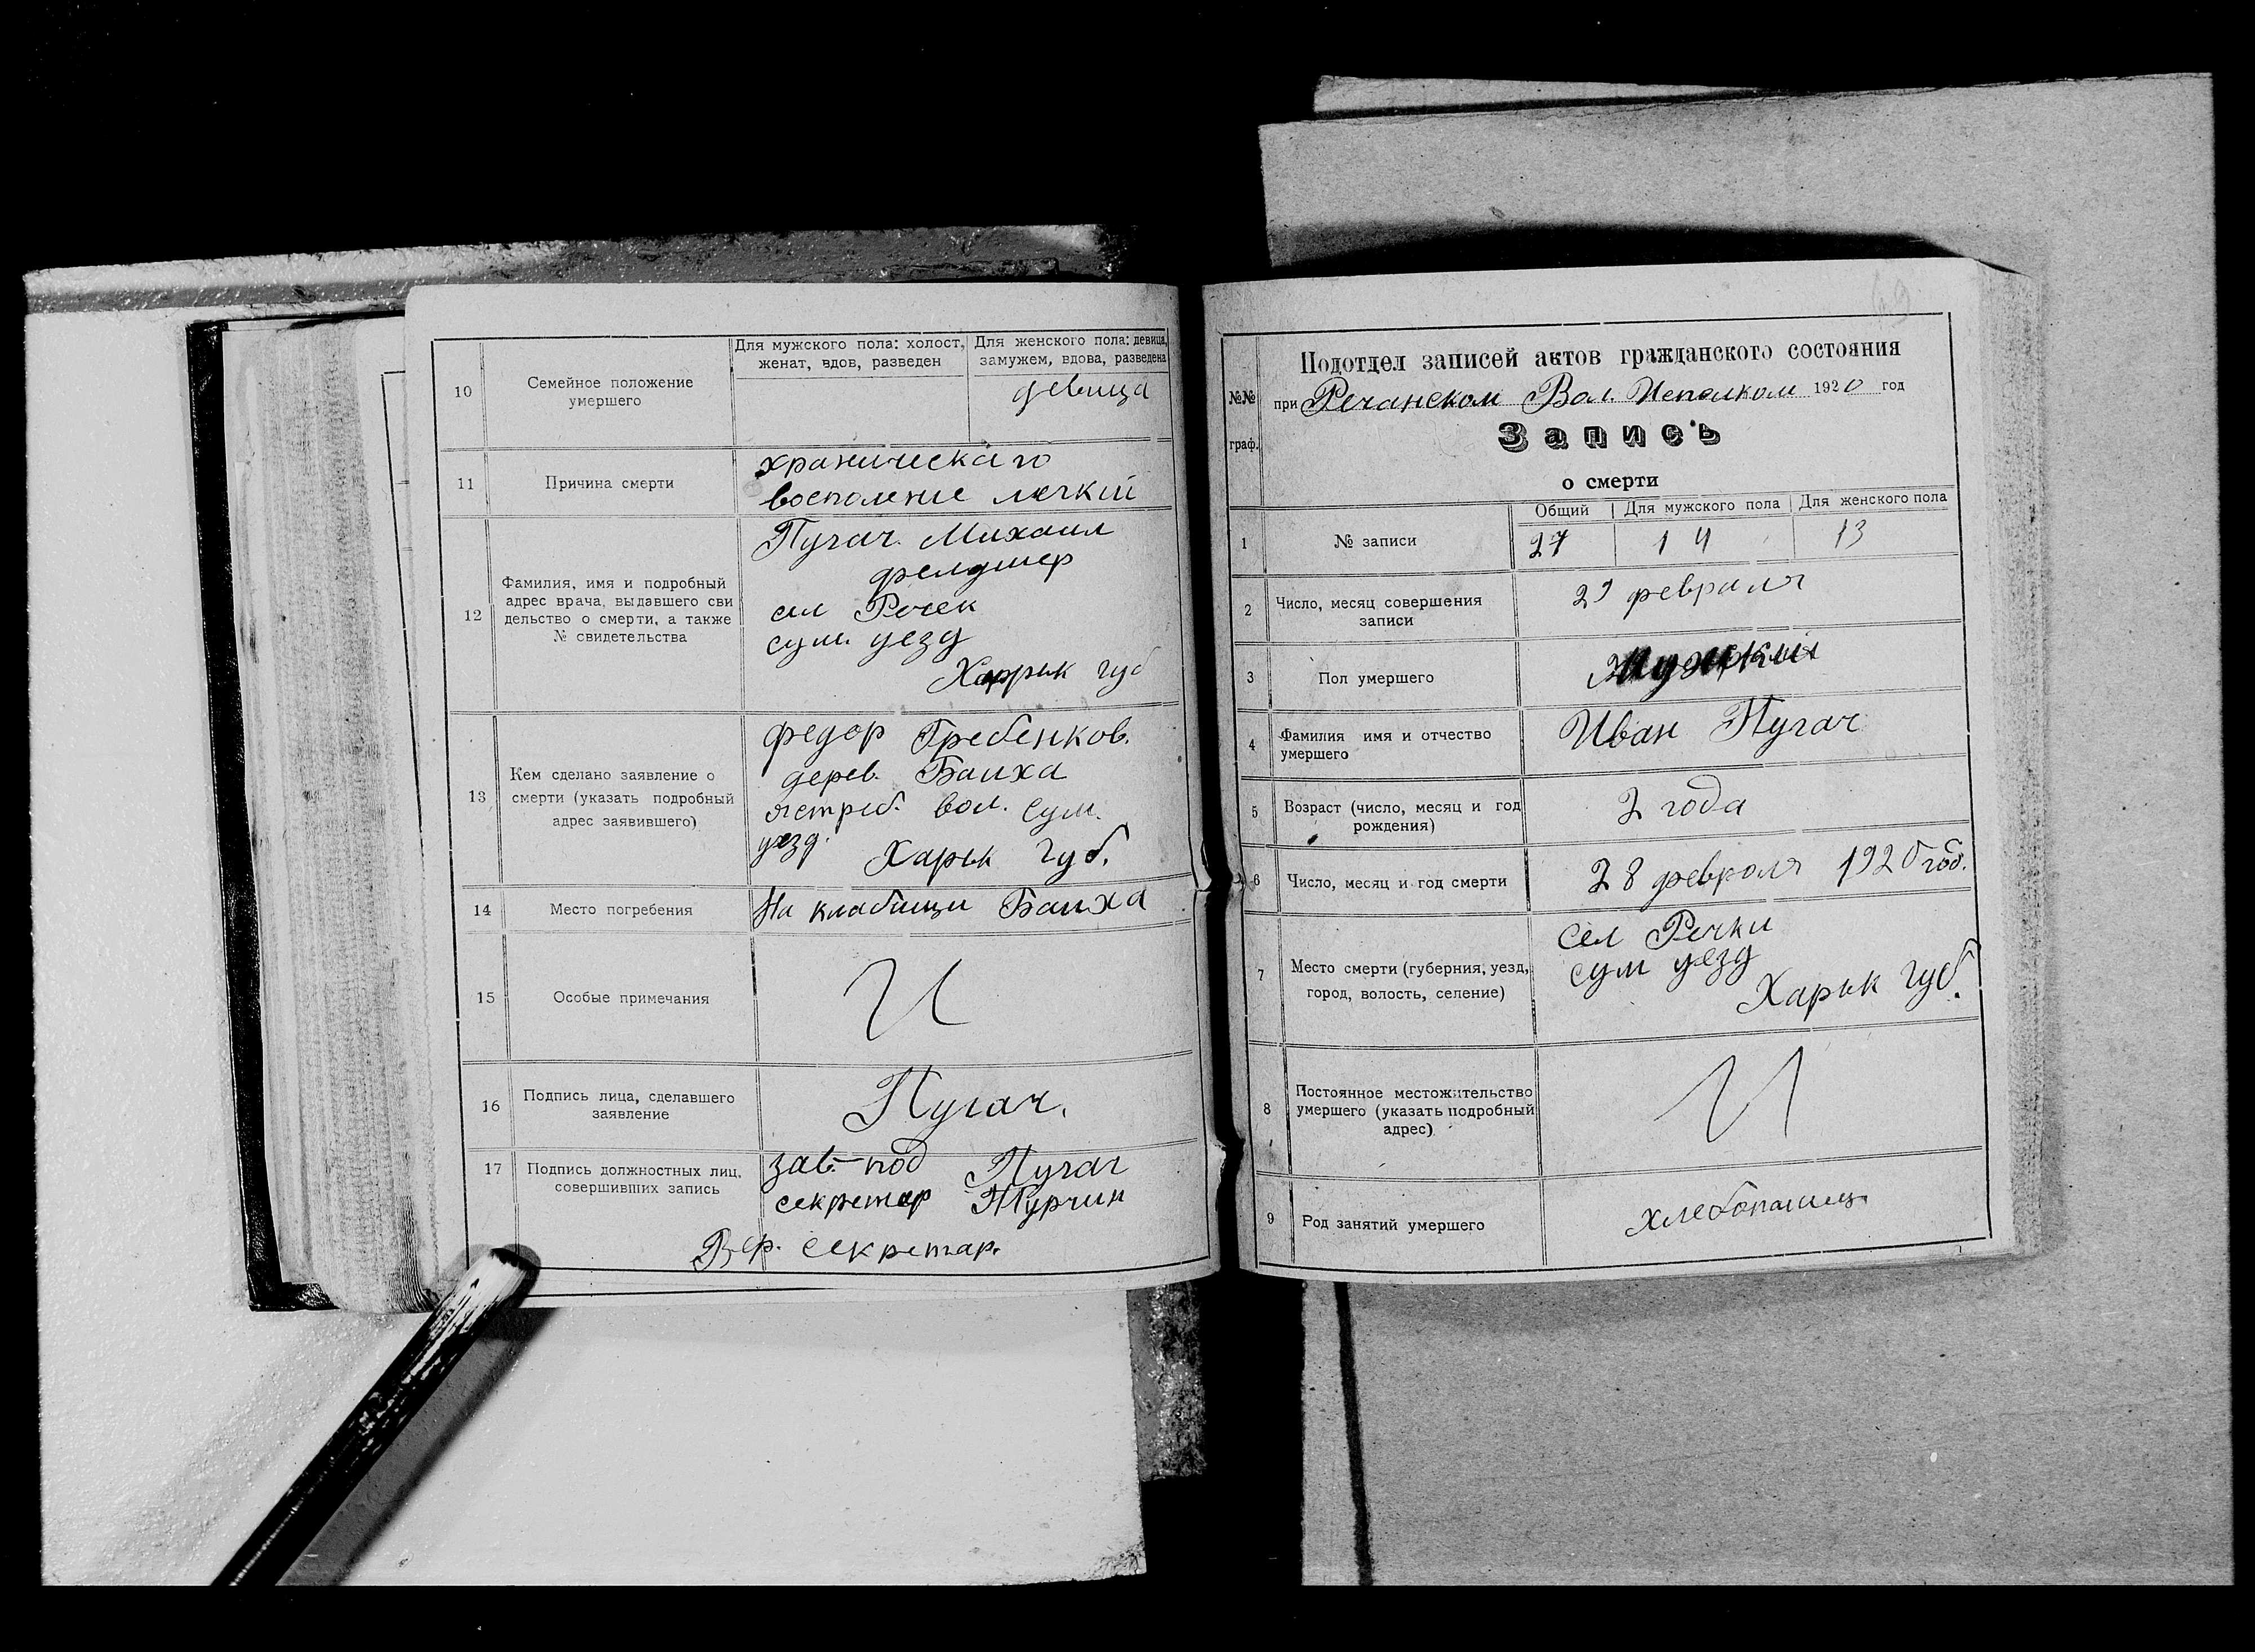 10
Семейное положение
умершего
Для мужского пола: холост,
женат, вдов, разведен
Для женского пола: девица,
замужем, вдова, разведена
девица
11
Причина смерти
хроническаго
восполение легкий
12
Фамилия, имя и подробный
адрес врача, выдавшего сви
дельство о смерти, а также
№ свидетельства
Пугач. Михаил
фелдшер
сел Речек
сум. уезд
Харьк губ
13
Кем сделано заявление о
смерти (указать подробный
адрес заявившего)
Федор Гребенков.
дерев. Баиха
ястреб. вол. Сум.
уезд. Харьк губ.
14
Место погребения
На кладбищи Баиха
15
Особые примечания
16
Подпись лица, сделавшего
заявление
Пугач.
17
Подпись должностных лиц,
совершивших запись
зав. под Пугач
секретар
Вер. секретар.
№№
граф.
Подотдел записей актов гражданского состояния
при Речанском Вол. Исполком 1920 год
Запись
о смерти
1
№ записи
Общий
Для мужского пола
Для женского пола
27
14
13
2
Число, месяц совершения
записи
29 февраля
3
Пол умершего
Мужский
4
Фамилия имя и отчество
умершего
Иван Пугач
5
Возраст (число, месяц и год
рождения)
2 года
6
Число, месяц и год смерти
28 февраля 1920 год.
7
Место смерти (губерния, уезд,
город, волость, селение)
сел Речки
сум уезд
Харьк губ.
8
Постоянное местожительство
умершего (указать подробный
адрес)
9
Род занятий умершего
хлебопашец